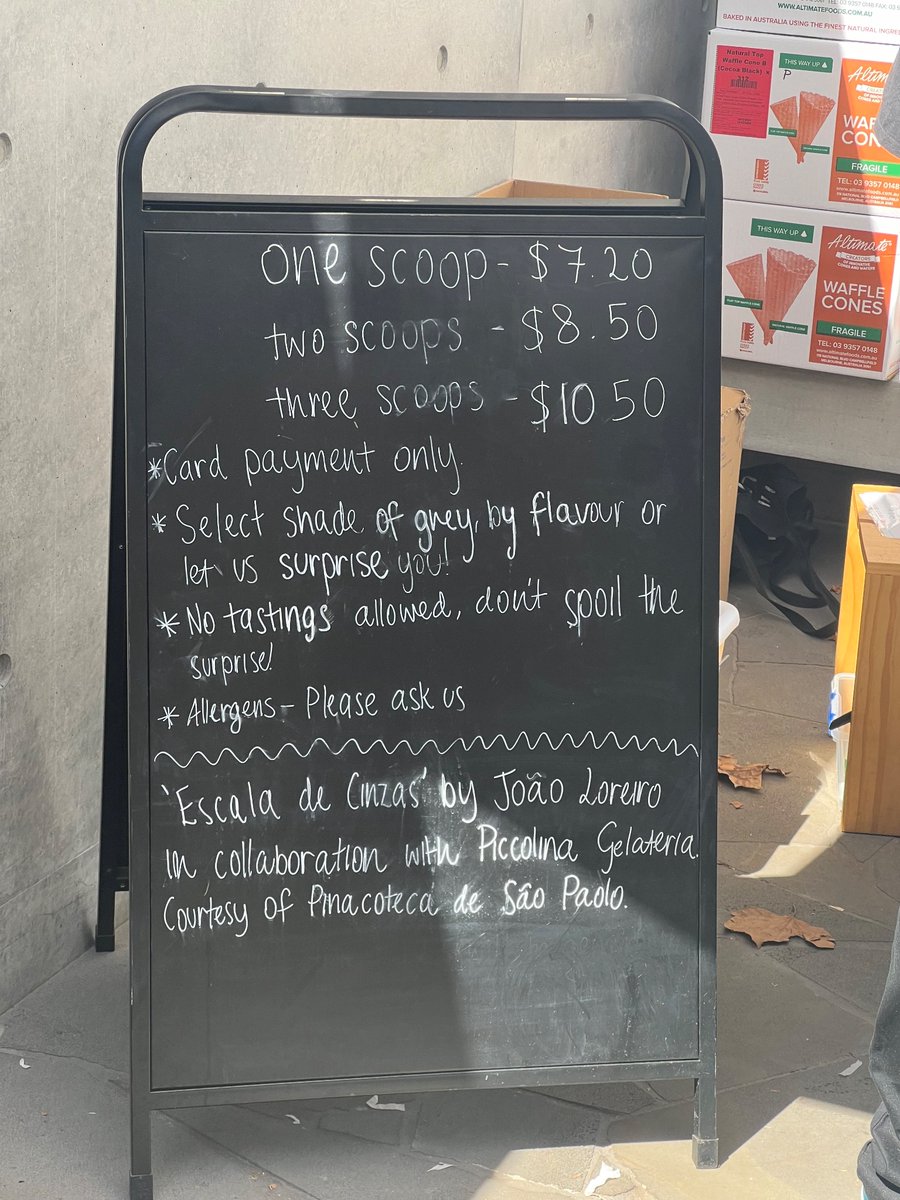 one scoop - $7.20
two scoops - $8.50
three scoops - $10.50
*Card payment only.
* Select shade of grey, by flavour or
let us surprise you!
* No tastings allowed, don't spoil the
surprise!
* Allergens - Please ask us
'Escala de Cinzas' by João Loreiro
in collaboration with Piccolina Gelateria.
Courtesy of Pinacoteca de São Paolo.
WWW.ALTIMATEFOODS.COM.AU
BAKED IN AUSTRALIA USING THE FINEST NATURAL INGRE
Natural Top
Waffle Cone B
(Cocoa Black) x
312
THIS WAY UP
P
Altim
WAF
CON
FRAGILE
TEL: 03 9357 0148
www.altimatefoods.com.au
THIS WAY UP
Altimate
CREATORS
OF INNOVATIVE
CONES AND WAFERS
WAFFLE
CONES
FRAGILE
TEL: 03 9357 0148
www.altimatefoods.com.au